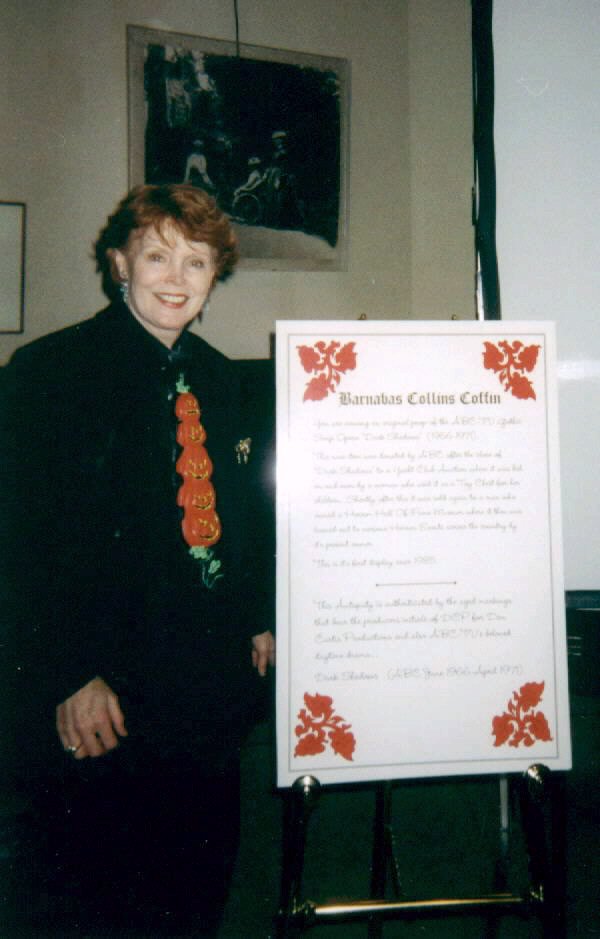 Barnabas Collins Coffin
You are viewing an original prop of the ABC TV Gothic
Soap Opera "Dark Shadows" (1966-1971).
This rare item was donated by ABC after the close of
"Dark Shadows" to a Yacht Club Auction where it was bid
on and won by a woman who used it as a Toy Chest for her
children... Shortly after this it was sold again to a man who
owned a Horror Hall Of Fame Museum where it then was
loaned out to various Horror Events across the country by
it's present owner.
"This is it's first display since 1985.
"This Antiquity is authenticated by the aged markings
that bear the producers initials of DCP for Dan
Curtis Productions and also ABC TV's beloved
daytime drama...
Dark Shadows (ABC June 1966-April 1971)